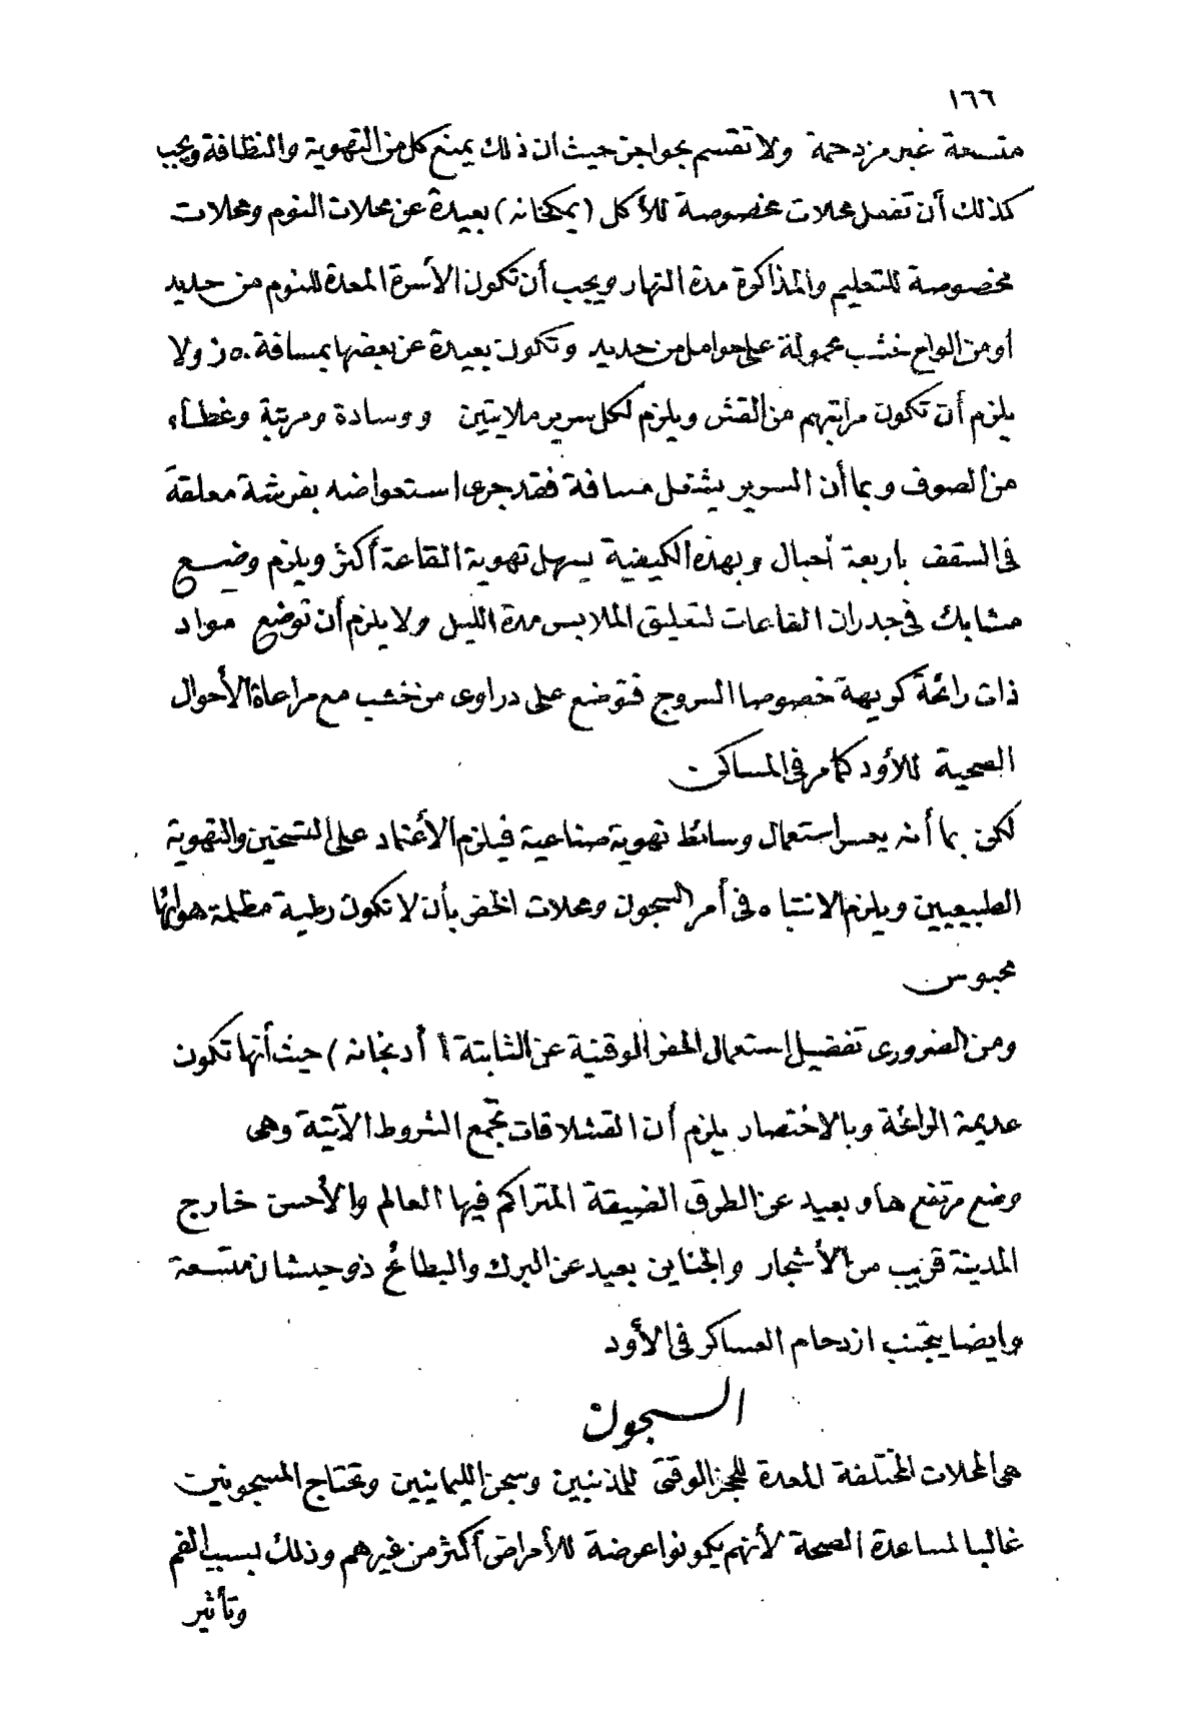 ١٦٦
متسعة غير مزدحمة ولا تقسم بحواجز حيث ان ذلك يمنع كل من التهوية والنظافة ويجب
كذلك أن تفصل محلات مخصوصة للأكل (يمكخانه) بعيدة عن محلات النوم ومحلات
مخصوصة للتعليم والمذاكرة مدة النهار ويجب أن تكون الأسرة المعدة للنوم من حديد
او من الواح خشب محمولة على حوامل من حديد وتكون بعيدة عن بعضها بمسافة ٥٠ ولا
يلزم أن تكون مراتبهم من القش ويلزم لكل سرير ملايتين ووسادة ومرتبة وغطاء
من الصوف وبما أن السرير يشغل مسافة فقد جرى استعواضه بفرشة معلقة
فى السقف باربعة أحبال وبهذه الكيفية يسهل تهوية القاعة أكثر ويلزم وضع
مشابك فى جدران القاعات لتعليق الملابس مدة الليل ولا يلزم أن توضع مواد
ذات رائحة كريهة خصوصا السروج فتوضع على دراوى من خشب مع مراعاة الأحوال
الصحية للأود كما مر فى المساكن
لكن بما أنه يعسر استعمال وسائط تهوية صناعية فيلزم الأعتماد على التسخين والتهوية
الطبيعيين ويلزم الانتباه فى أمر السجون ومحلات الخفر بأن لا تكون رطبة مظلمة هوائها
محبوس
ومن الضرورى تفضيل إستعمال الحفر الوقتية عن الثابتة (أدبخانه) حيث أنها تكون
عديمة الرائحة وبالاختصار يلزم أن القشلاقات تجمع الشروط الآتية وهى
وضع مرتفع هاو بعيد عن الطرق الضيقة المتراكم فيها العالم والأحسن خارج
المدينة قريب من الأشجار والجناين بعيد عن البرك والبطائح ذو حيشان متسعة
وايضا يتجنب ازدحام العساكر فى الأود
السجون
هى المحلات المختلفة المعدة للحجز الوقتى للمذنبين وسجن الليمانيين وتحتاج المسجونين
غالبا لمساعدة الصحة لأنهم يكونوا عرضة للأمراض أكثر من غيرهم وذلك بسبب الغم
وتأثير